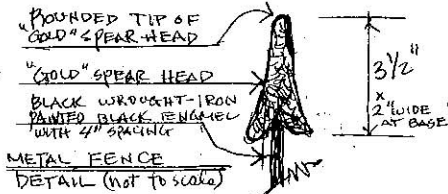 "ROUNDED TIP OF
GOLD" SPEAR-HEAD
"GOLD" SPEAR HEAD
BLACK WROUGHT-IRON
PAINTED BLACK ENGMEL
WITH 4" SPACING
METAL FENCE
DETAIL (not to scale)
3 1/2"
x
2" WIDE
AT BASE